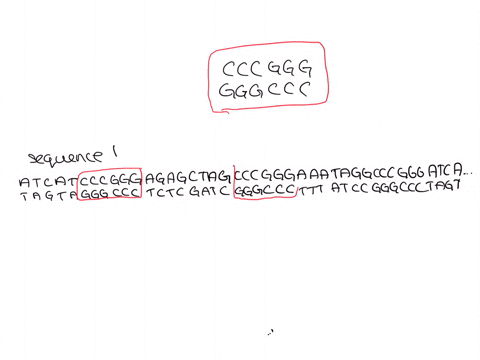 CCCGGG
GGGCCC
sequence 1
ATCATCCCGGGAGAGCTAGCCCGGGAAATAGGCCCGGGATCA...
TAGTAGGGCCCTCTCGATCGGGCCCTTTATCCGGGCCCTAGT